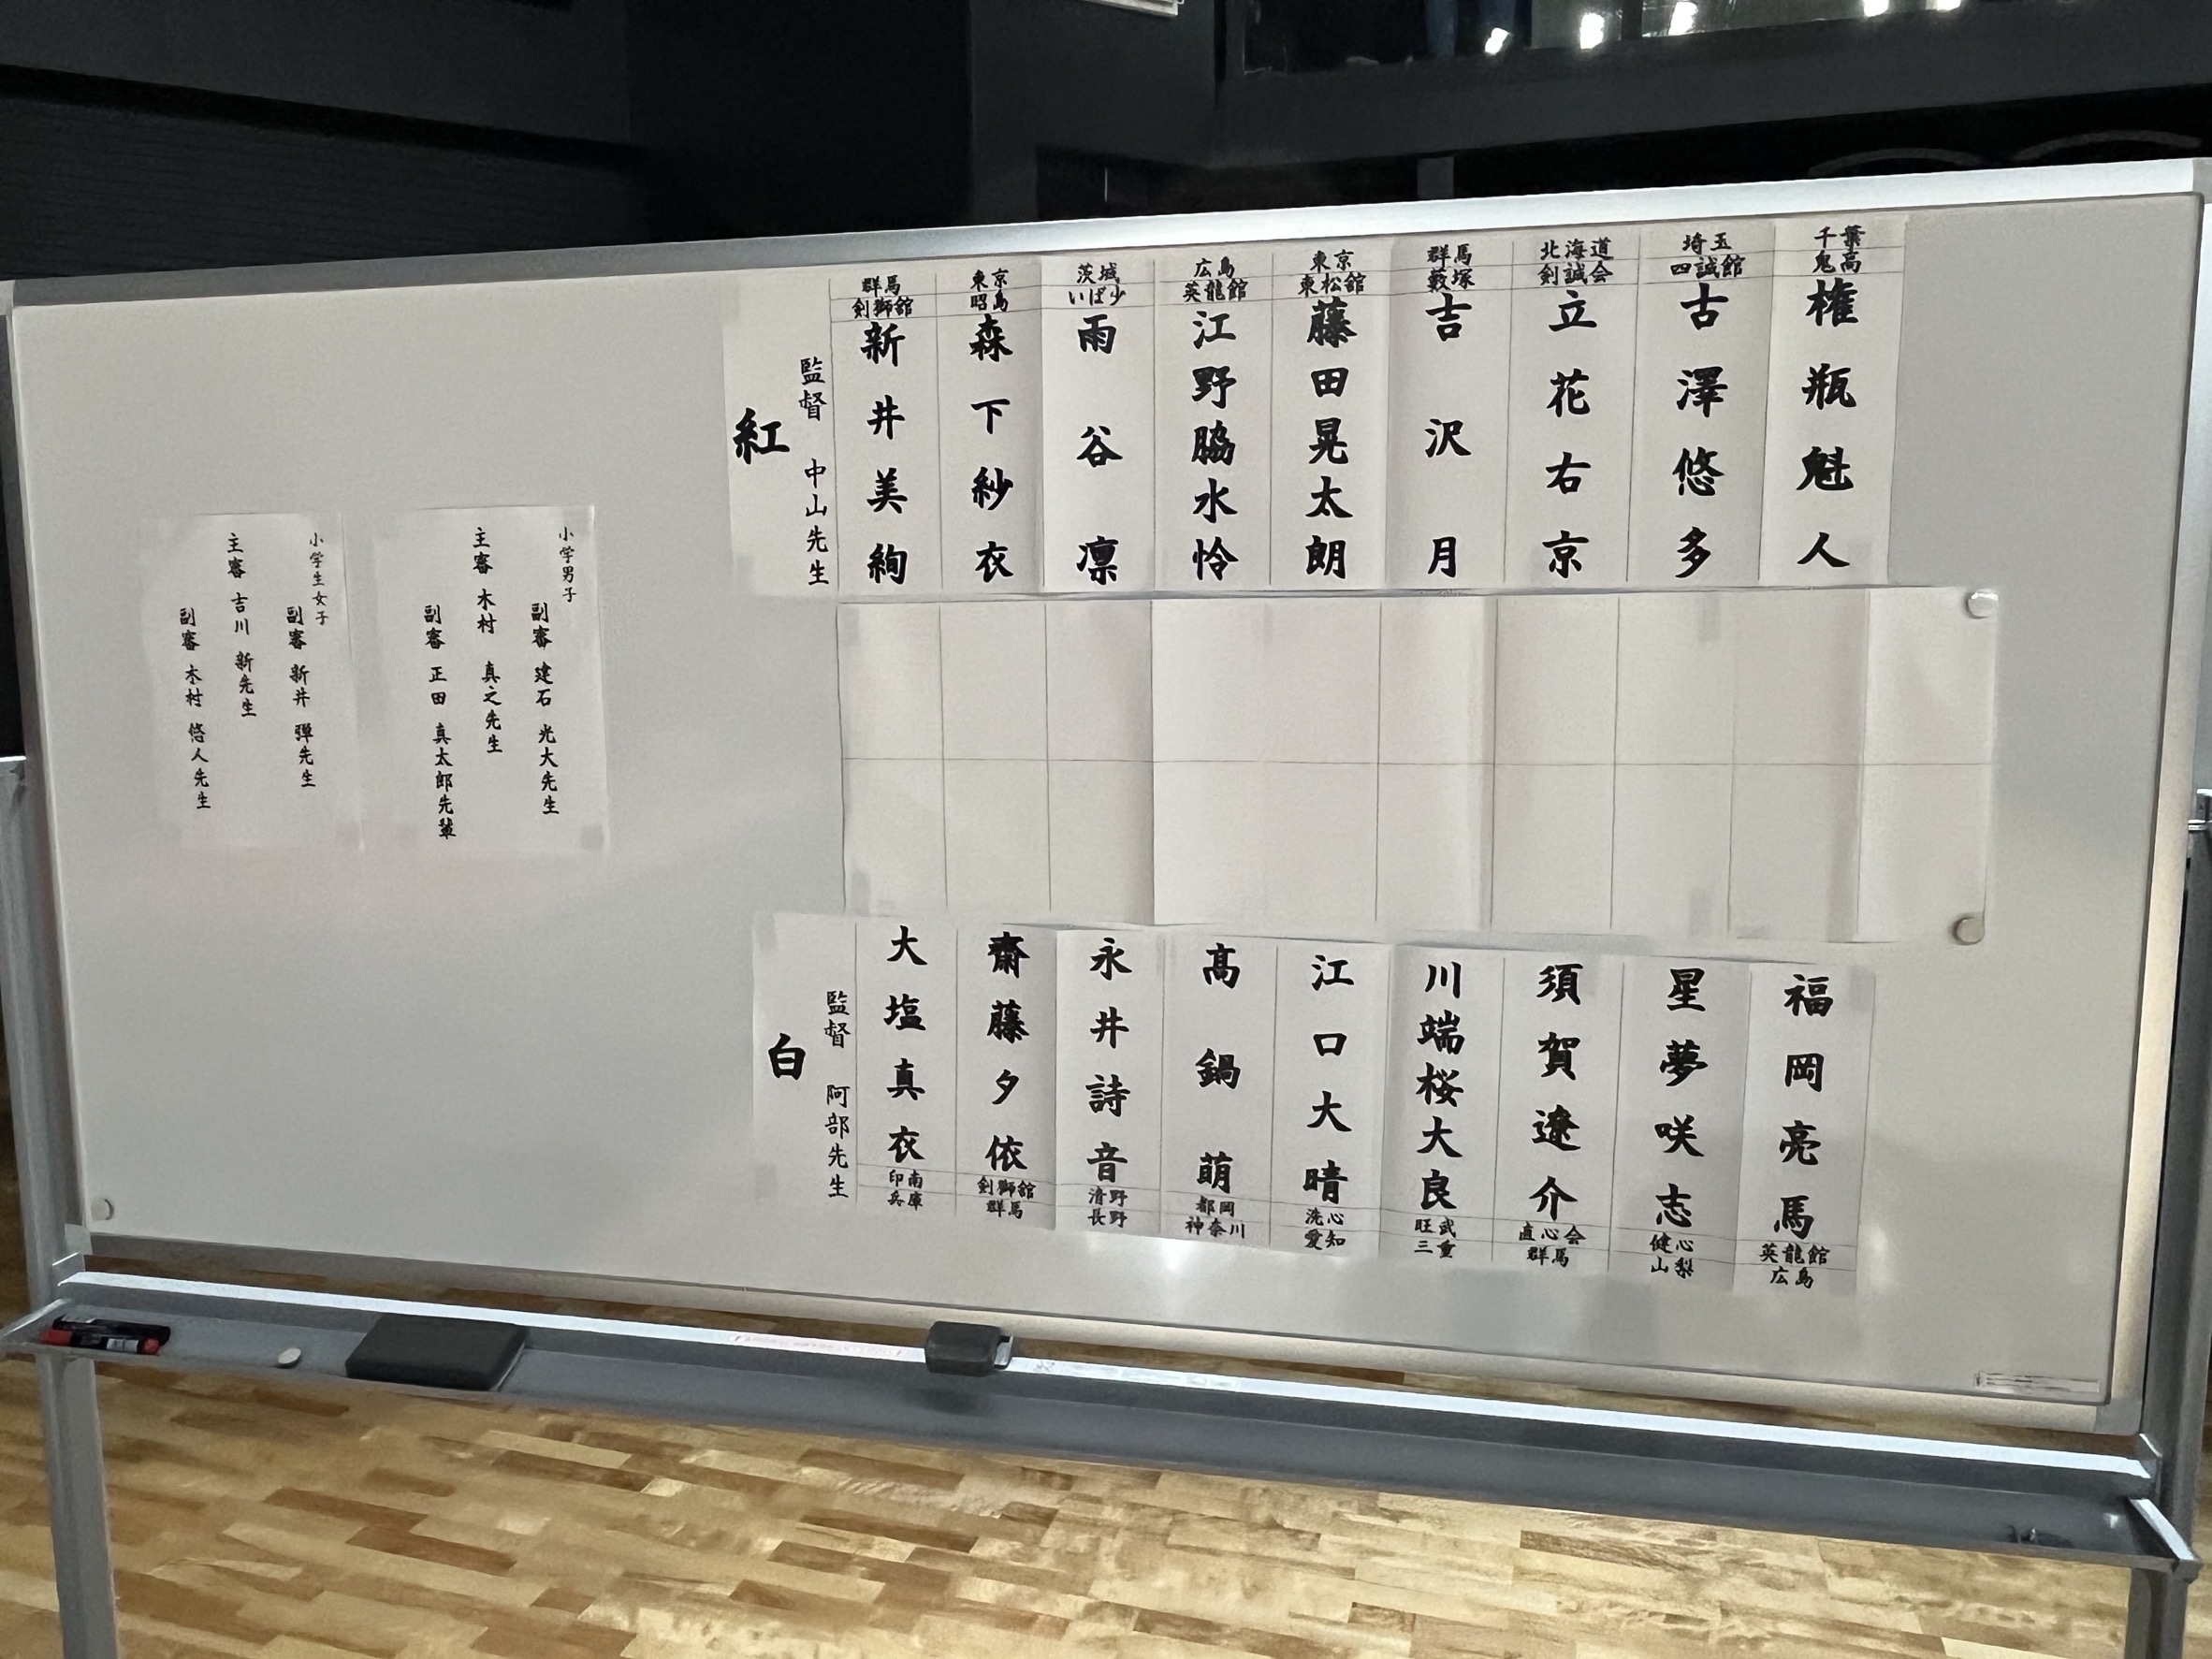 千葉
鬼高
権瓶魁人
埼玉
四誠館
古澤悠多
北海道
剣誠会
立花右京
群馬
藪塚
吉沢月
東京
東松舘
藤田晃太朗
広島
英龍館
江野脇水怜
茨城
いば少
雨谷凛
東京
昭島
森下紗衣
群馬
剣獅舘
新井美絢
監督 中山先生
紅
福岡亮馬
英龍館
広島
星夢咲志
健心
山梨
須賀遼介
直心会
群馬
川端桜大良
旺武
三重
江口大晴
洗心
愛知
髙鍋萌
都岡
神奈川
永井詩音
清野
長野
齋藤夕依
剣獅舘
群馬
大塩真衣
印南
兵庫
監督 阿部先生
白
小学男子
副審 建石 光大先生
主審 木村 真之先生
副審 正田 真太郎先輩
小学生女子
副審 新井 弾先生
主審 吉川 新先生
副審 木村 悠人先生